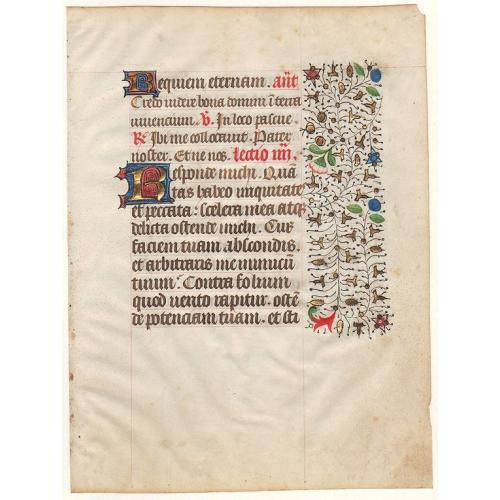 Requiem eternam. añt
Credo videre bona domini ī terra
viuencium. V. In loco pascue.
R. Ibi me collocauit. Pater
noster. Et ne nos. lectio iiij.
Responde michi. Quā
tas habeo iniquitates
et peccata: scelera mea atqȝ
delicta ostende michi. Cur
faciem tuam abscondis.
et arbitraris me inimicū
tuum. Contra folium
quod uento rapitur. ostē
de potenciam tuam. et sti